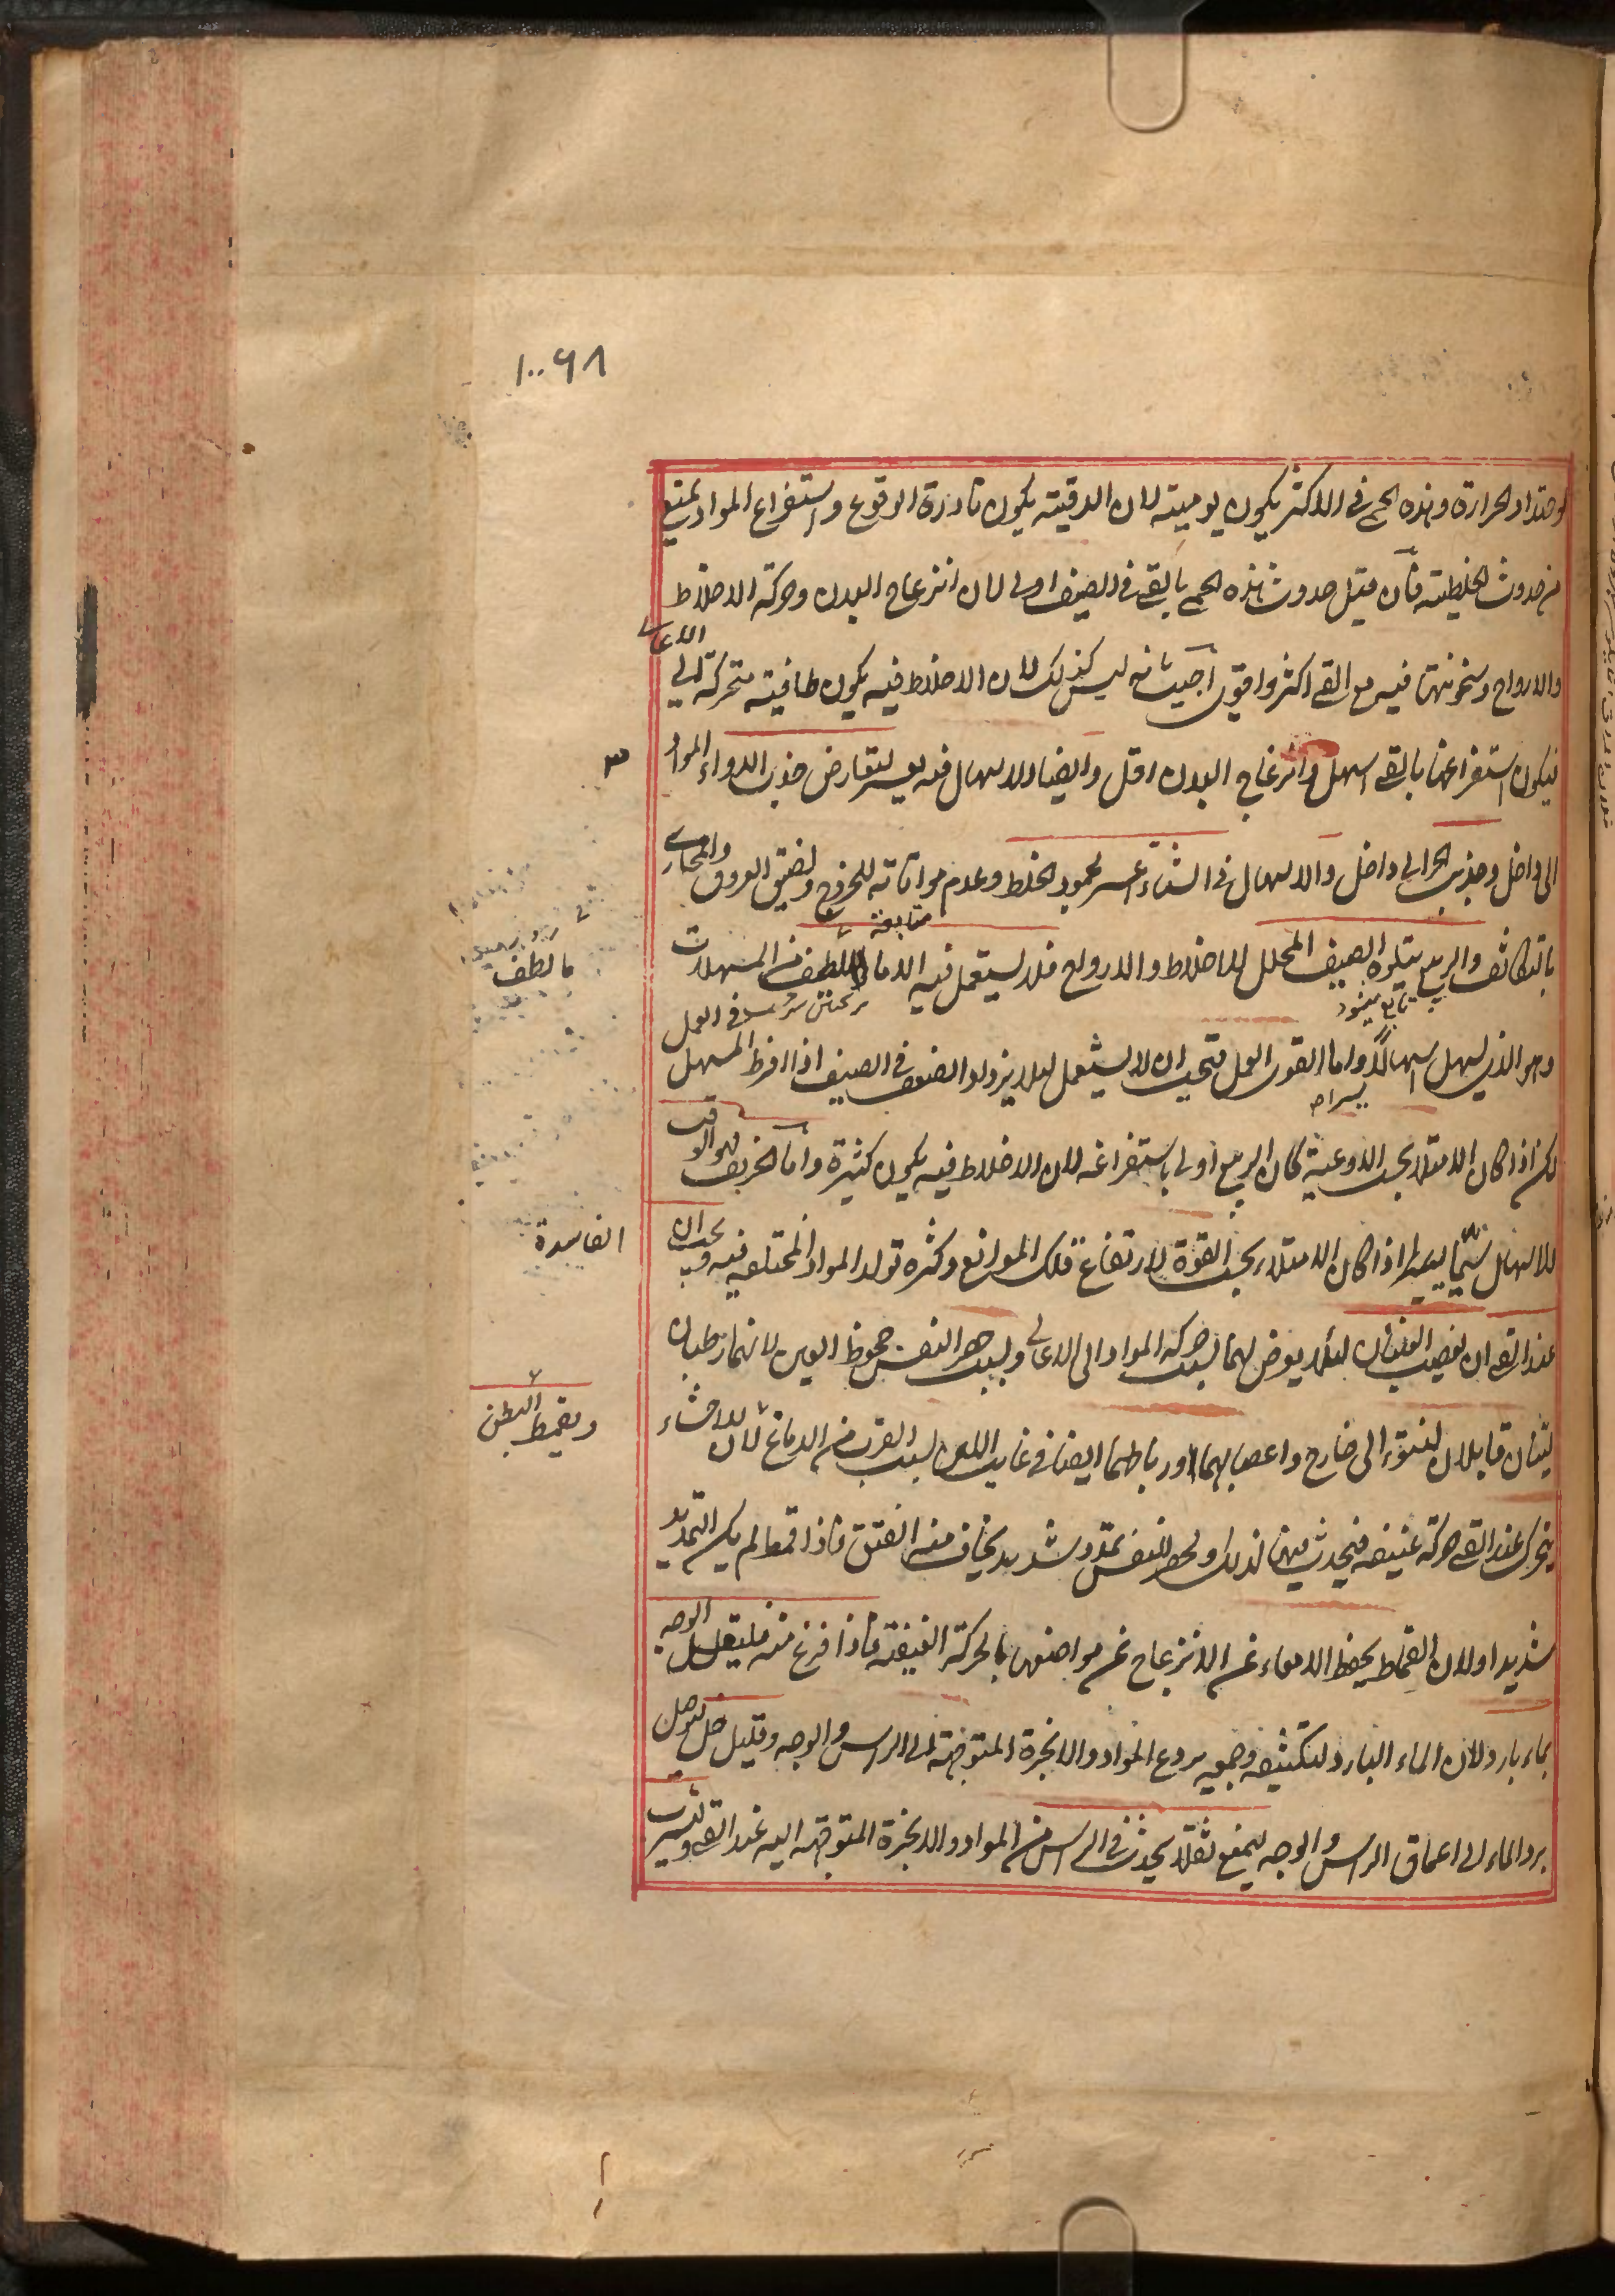 ١٠٠٦٨
واحتداد الحرارة وهذه الحمى فى الاكثر يكون يومية لان الدقية يكون نادرة الوقوع واستفراغ المواد يمنع
من حدوث الخلطية فان قيل حدوث هذه الحمى بالقى فى الصيف اولى لان انزعاج البدن وحركة الاخلاط
والارواح وسخونتها فيه مع القى اكثر واقوى اجيب بانه ليس كذلك لان الاخلاط فيه يكون طافية متحركة الى الاعالى
فيكون استفراغها بالقى اسهل وانزعاج البدن اقل وايضا الاسهال فيه يعسر لتعارض جذب الدواء المواد
٣
الى داخل وجذب الحر الى داخل والاسهال فى الشتاء اعسر لجمود الخلط وعدم مواتاته للخروج ولضيق العروق والمجارى
بالتكاثف والربيع يتلوه الصيف المحلل للاخلاط والارواح فلا يستعمل فيه الا ما لطف من المسهلات
ما لطف
تابع ميشود
وهو الذى يسهل اسهالا واما القوى العمل فيجب ان لا يستعمل لئلا يزداد الضعف فى الصيف اذا افرط المسهل فى العمل
يسيرا صح
لكن اذا كان الامتلاء بحسب الاوعية كان الربيع اولى باستفراغه لان الاخلاط فيه يكون كثيرة واما الخريف فهو اوفق
للاسهال سيما اذا كان الامتلاء بحسب القوة لارتفاع تلك الموانع وكثرة تولد المواد المختلفة فيه ويجب ان
الفاسدة
عند القى ان يعصب العينان لئلا يعرض لهما بسبب حركة المواد الى الاعالى وبسبب حصر النفس جحوظ العين لانهما رطبان
لينان قابلان لنتوء الى خارج واعصابهما ورباطهما ايضا فى غاية اللين بسبب القرب من الدماغ لان الاحشاء
ويقمط البطن
يتحرك عند القى حركة عنيفة فيحدث فيها لذلك ولحصر النفس تمدد شديد يخاف منه الفتق فاذا قمط لم يكن التمديد
شديدا ولان القماط يحفظ الامعاء عن الانزعاج عن مواضعها بالحركة العنيفة فاذا فرغ منه فليغسل الوجه
بماء بارد لان الماء البارد لتكثيفه وجمعه يردع المواد والابخرة المتوجهة الى الراس والوجه وقليل خل ليوصل
برد الماء الى اعماق الراس والوجه ليمنع ثقلا يحدث فى الراس من المواد والابخرة المتوجهة اليه عند القى وليشرب